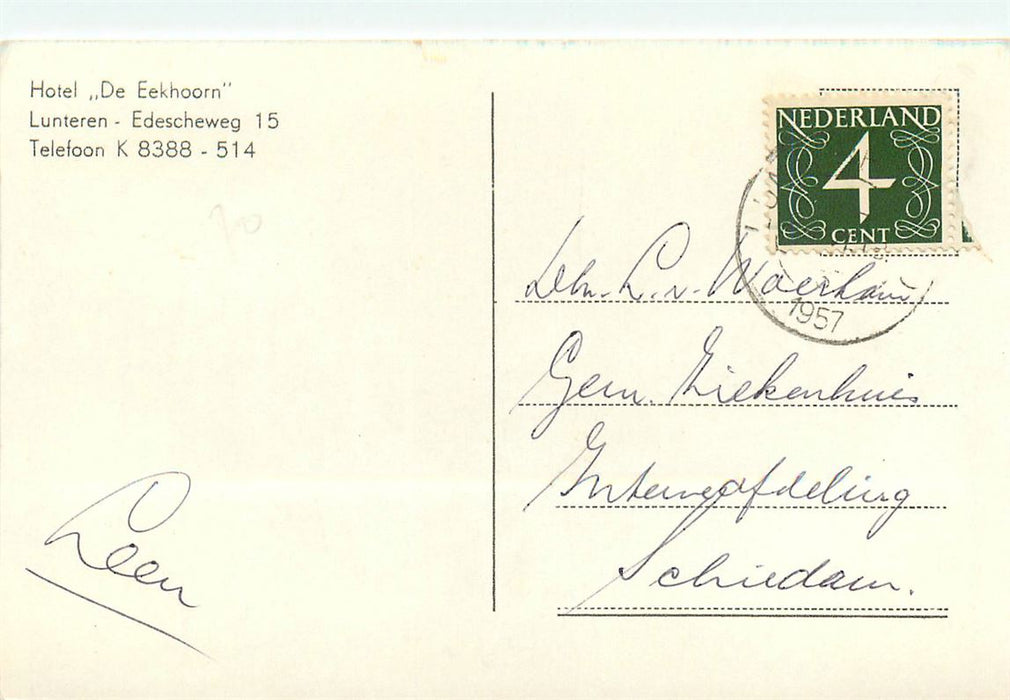 Hotel „De Eekhoorn"
Lunteren - Edescheweg 15
Telefoon K 8388 - 514
70
NEDERLAND
4
CENT
1957
L. v.
Gem. Ziekenhuis
Interneafdeling
Schiedam.
Leen